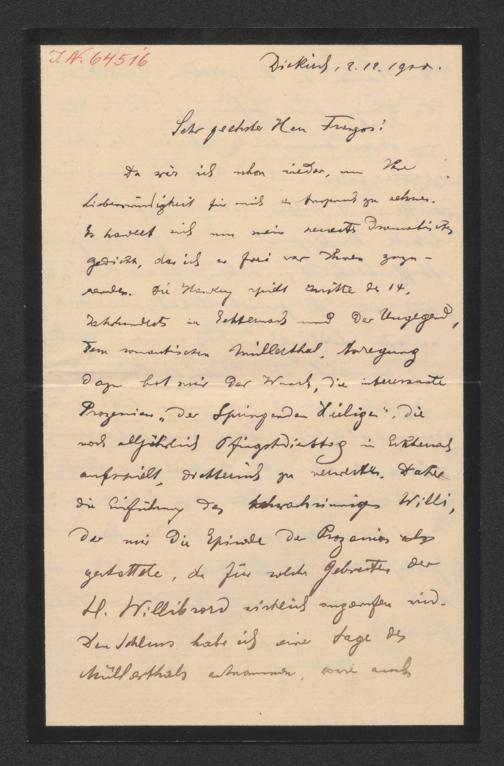 I.N. 64516
Diekirch, 2.12.1900.
Sehr geehrter Herr Franzos!
Da wär ich schon wieder, um Ihre
Liebenswürdigkeit für mich in Anspruch zu nehmen.
Es handelt sich um mein neuestes dramatisches
Gedicht, das ich so frei war Ihnen zuzu-
senden. Die Handlung spielt Mitte des 14.
Jahrhunderts in Echternach und der Umgegend,
dem romantischen Müllerthal. Anregung
dazu bot mir der Wunsch, die interessante
Prozession „Der Springenden Heiligen“, die
noch alljährlich Pfingstdienstag in Echternach
aufspielt, dichterisch zu verwerten. Daher
die Einführung des schwachsinnigen Willi,
der mir die Episode der Prozession
gestattete, da für solche Gebrechen der
H. Willibrord wirklich angerufen wird.
Den Schluss habe ich einer Sage des
Müllerthals entnommen, sowie auch